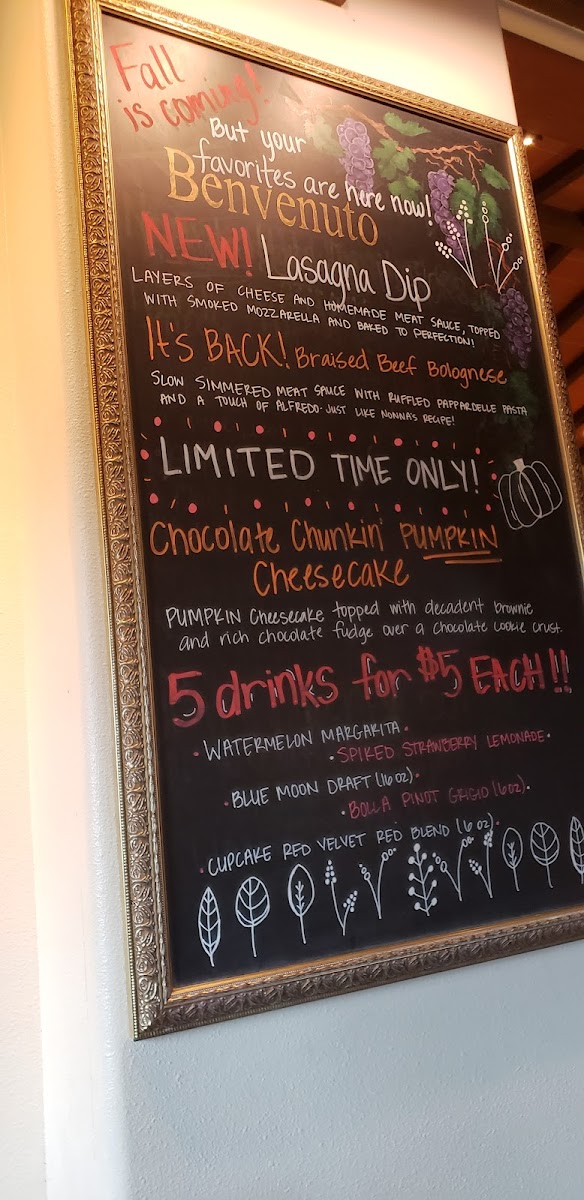 Fall
is coming!
But your
favorites are here now!
Benvenuto
NEW! Lasagna Dip
LAYERS OF CHEESE AND HOMEMADE MEAT SAUCE, TOPPED
WITH SMOKED MOZZARELLA AND BAKED TO PERFECTION!
It's BACK! Braised Beef Bolognese
SLOW SIMMERED MEAT SAUCE WITH RUFFLED PAPPARDELLE PASTA
AND A TOUCH OF ALFREDO- JUST LIKE NONNA'S RECIPE!
LIMITED TIME ONLY!
Chocolate Chunkin' PUMPKIN
Cheesecake
PUMPKIN Cheesecake topped with decadent brownie
and rich chocolate fudge over a chocolate cookie crust.
5 drinks for $5 EACH!!
• WATERMELON MARGARITA •
• SPIKED STRAWBERRY LEMONADE •
• BLUE MOON DRAFT (16 oz) •
• BOLLA PINOT GRIGIO (6 oz) •
• CUPCAKE RED VELVET RED BLEND (6 oz) •